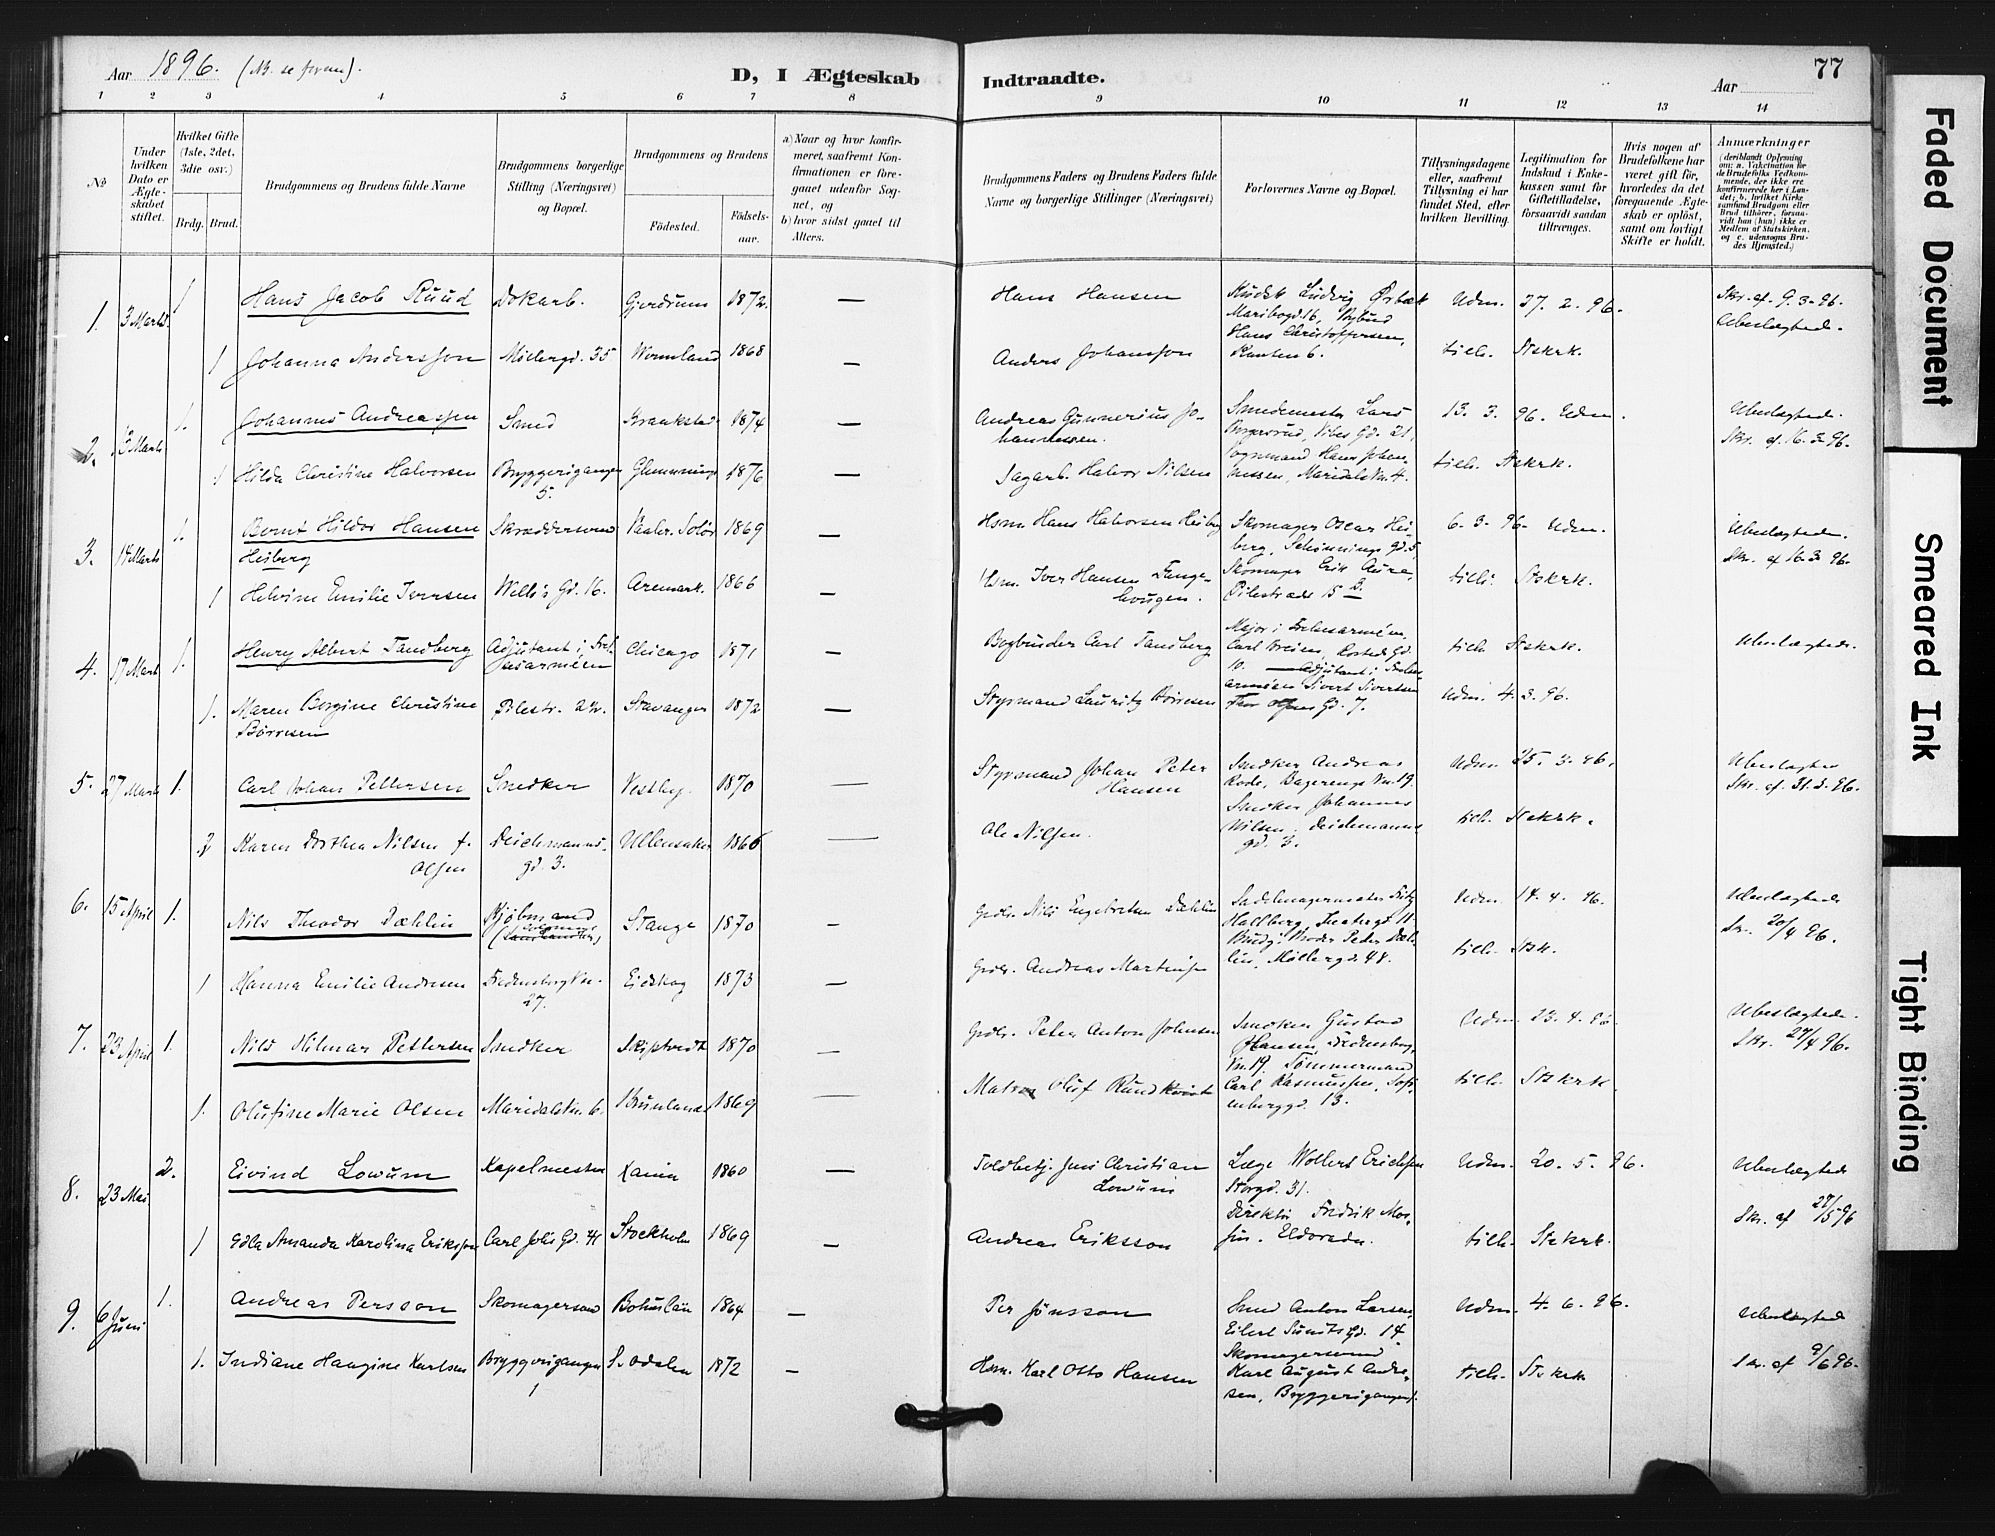 Aar 1896. (NB. se forrun).
D, I Ægteskab Indtraadte.
Aar 77
1 2 3 4 5 6 7 8 9 10 11 12 13 14
№
Under hvilken Dato er Ægteskabet stiftet.
Hvilket Gifte (1ste, 2det, 3die osv.)
Brdg. Brud.
Brudgommens og Brudens fulde Navne
Brudgommens borgerlige Stilling (Næringsvei) og Bopæl.
Brudgommens og Brudens
Fødested.
Fødselsaar.
a) Naar og hvor konfirmeret, saafremt Konfirmationen er foregaaet udenfor Sognet, og
b) hvor sidst gaaet til Alters.
Brudgommens Faders og Brudens Faders fulde Navne og borgerlige Stillinger (Næringsvei)
Forlovernes Navne og Bopæl.
Tillysningsdagene eller, saafremt Tillysning ei har fundet Sted, efter hvilken Bevilling.
Legitimation for Indskud i Enkekassen samt for Giftetilladelse, forsaavidt saadan tiltrænges.
Hvis nogen af Brudefolkene har været gift før, hvorledes da det foregaaende Ægteskab er opløst, samt om lovligt Skifte er holdt.
Anmærkninger
(deriblandt Oplysning om: a. Vakcination for de Brudefolks Vedkommende, der ikke ere konfirmerede her i Landet; b. hvilket Kirkesamfund Brudgom eller Brud tilhører, forsaavidt han (hun) ikke er Medlem af Statskirken, og c. udensogns Brudes Hjemsted.)
1. 3 Marts 1 Hans Jacob Ruud Dokarb. Gjerdrum 1872. — Hans Hansen Kudsk Ludvig Østbæk Udm. 27. 2. 96. Skr. af 9. 3. 96.
Maribogd. 16, Ubeslægtede.
Hans Christoffersen,
1 Johanna Andersson Møllergd. 35 Wermland 1868 — Anders Johansson 6. tilh. Stskrk.
2. Marts 1. Johannes Andreassen Smed Kraakstad 1874 — Andreas Gunnerius Johannessen. Smedemester Lars 13. 3. 96. Udm. Ubeslægtede.
Vibes Gd. 21, Skr. af 16. 3. 96.
Hans Johannessen, Maridalsvn. 4.
1 Hilda Christine Halvorsen Bryggerigangen 5. Glemminge 1876 — Sagarb. Halvor Nilsen tilh. Stskrk.
3. 14 Marts 1. Bernt Hildor Hansen Heiberg Skræddersvend Vaaler. Solør 1869 — Hsm. Hans Halvorsen Heiberg Skomager Oscar Heiberg, Schønnings gd. 5 6. 3. 96. Udm. Ubeslægtede.
Skr. af 16. 3. 96.
1 Helvine Emilie Iversen Wells Gd. 16. Aremark. 1866 — Hsm. Iver Hansen Skomager Erik Aure, Pilestræde 15 tilh. Stskrk.
4. 17 Marts 1. Henry Albert Tandberg Adjutant i Frelsesarméen Chicago 1871 — Bogbinder Carl Tandberg Major i Frelsesarméen, tilh. Stskrk. Ubeslægtede.
Carl Breien, Rosteds Gd. 10. — Adjutant i Frelsesarméen Sivert Sivertsen
1. Maren Bergine Christine Børresen Pilestr. Stavanger 1872 — Styrmand Lauritz Børresen Thor Olsens Gd. 7. Udm. 4. 3. 96.
5. 27 Marts 1. Carl Johan Pettersen Snedker Vestby. 1870 — Styrmand Johan Peter Hansen Snedker Andreas Rode, Vn. 19. Udm. 25. 3. 96. Ubeslægtede
Skr. af 31. 3. 96.
2 Karen Dorthea Nilsen f. Olsen Deichmannsgd. 3. Ullensaker 1866 — Ole Nilsen. Snedker Johannes Nilsen, Deichmannsgd. 3. tilh. Stskrk.
6. 15 April 1. Nils Theodor Dæhlin Kjøbmand Stange 1870 — Grdbr. Nils Engebretsen Dæhlin Sadelmagermester Fritz Hallberg, Theatergd. 11. Udm. 14. 4. 96. Ubeslægtede
Brudg. Broder Peter Dæhlin, Møllergd. 48. Sk. 20/4 96.
1 Hanna Emilie Andresen Fredensborgvn. 27. Eidskog 1873 — Grdbr. Andreas tilh. Stsk.
7. 23 April 1. Nils Hilmar Pettersen Snedker Skiptvedt 1870 — Grdbr. Peter Anton Johnsen Snedker Gustav Hansen, Fredensborgvn. 19. Udm. 23. 4. 96. Ubeslægtede.
Tømmermand Carl Rasmussen, Sofienberggd. 13. Skr. 27/4 96.
1. Olufine Marie Olsen Maridalsvn. 6. Brunlanes 1869 — Matros Oluf Rundkvist tilh. Stskrk.
8. 23 Mai. 2. Eivind Lowum Kapelmester 1860 — Toldbetj. Jens Christian Lowum Læge Wollert Erichsen Storgd. 31. Udm. 20. 5. 96. Ubeslægtede
Skr. af 27/5 96
1 Edla Amanda Karolina Eriksson Carl Joh's Gd. 41 Stockholm 1869 — Andreas Eriksson Direktør Fredrik Eldorado. tilh. Stskrk.
9. 6 Juni 1. Andreas Persson Skomagersvend Bohuslän 1864 — Per Jönsson Smed Anton Larsen, Eilert Sundts Gd. 14 Udm. 4. 6. 96. Ubeslægtede
Skr. af 9/6 96.
1. Indiane Haugine Karlsen Bryggerigangen 1 S. Odalen 1872 — Hsm. Karl Otto Hansen Skomagersvend Karl August Andresen, Bryggerigangen 1. tilh. Stskrk
Faded Document
Smeared Ink
Tight Binding